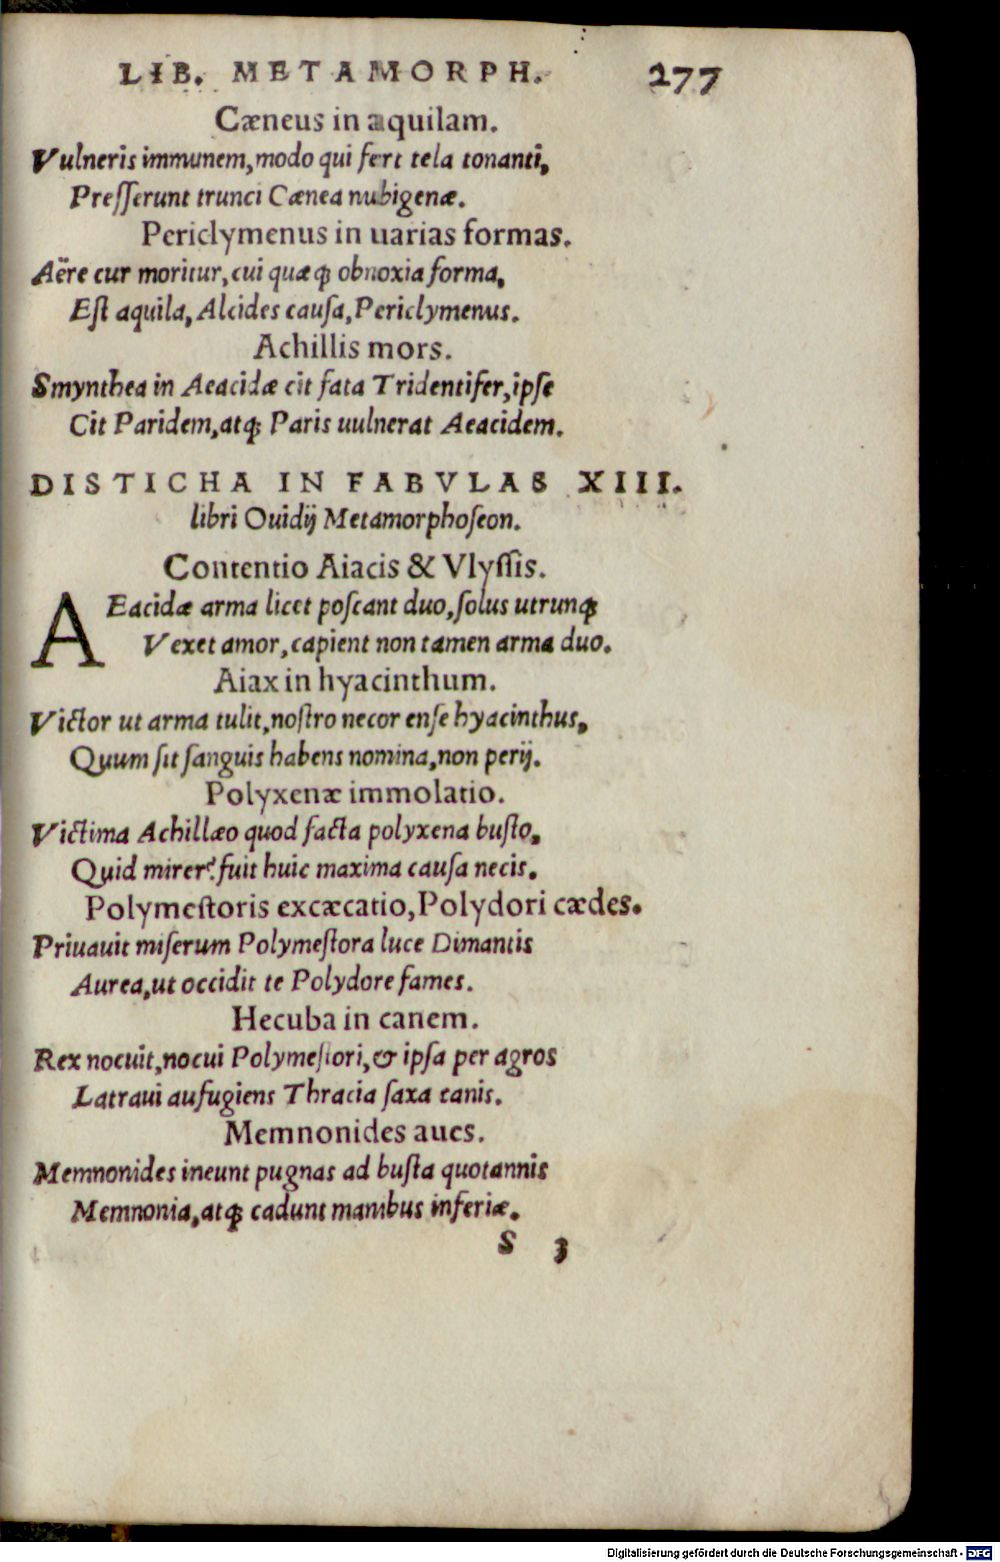 LIB. METAMORPH. 277
Cæneus in aquilam.
Vulneris immunem, modo qui fert tela tonanti,
Preſſerunt trunci Cænea nubigenæ.
Periclymenus in uarias formas.
Aëre cur moritur, cui quæꝗ obnoxia forma,
Eſt aquila, Alcides cauſa, Periclymenus.
Achillis mors.
Smynthea in Aeacidæ cit fata Tridentifer, ipſe
Cit Paridem, atꝗ Paris uulnerat Aeacidem.
DISTICHA IN FABVLAS XIII.
libri Ouidij Metamorphoſeon.
Contentio Aiacis & Vlyſſis.
AEacidæ arma licet poſcant duo, ſolus utrunꝗ
Vexet amor, capient non tamen arma duo.
Aiax in hyacinthum.
Victor ut arma tulit, noſtro necor enſe hyacinthus,
Quum ſit ſanguis habens nomina, non perij.
Polyxenæ immolatio.
Victima Achillæo quod facta polyxena buſto,
Quid mirer? fuit huic maxima cauſa necis.
Polymeſtoris excæcatio, Polydori cædes.
Priuauit miſerum Polymeſtora luce Dimantis
Aurea, ut occidit te Polydore fames.
Hecuba in canem.
Rex nocuit, nocui Polymeſtori, & ipſa per agros
Latraui aufugiens Thracia ſaxa canis.
Memnonides aues.
Memnonides ineunt pugnas ad buſta quotannis
Memnonia, atꝗ cadunt manibus inferiæ.
S 3
Digitalisierung gefördert durch die Deutsche Forschungsgemeinschaft - DFG